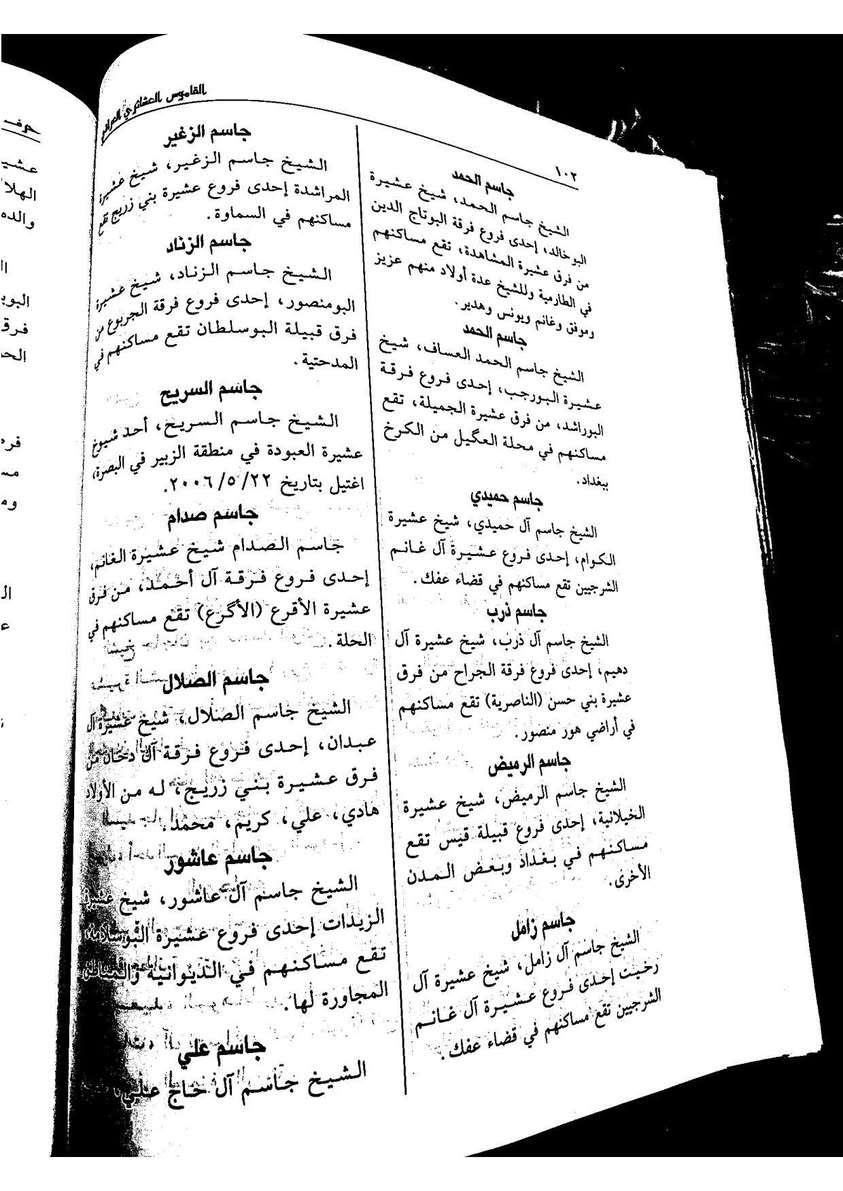 ١٠٢
القاموس العشائري العراقي
جاسم الحمد
الشيخ جاسم الحمد، شيخ عشيرة
البوخالد، إحدى فروع فرقة البوتاج الدين
من فرق عشيرة المشاهدة، تقع مساكنهم
في الطارمية وللشيخ عدة أولاد منهم عزيز
وموفق وغانم ويونس وهدير.
جاسم الحمد
الشيخ جاسم الحمد العساف، شيخ
عشيرة البورجب، إحدى فروع فرقة
البوراشد، من فرق عشيرة الجميلة، تقع
مساكنهم في محلة العگيل من الكرخ
ببغداد.
جاسم حميدي
الشيخ جاسم آل حميدي، شيخ عشيرة
الكوام، إحدى فروع عشيرة آل غانم
الشرجيين تقع مساكنهم في قضاء عفك.
جاسم ذرب
الشيخ جاسم آل ذرب، شيخ عشيرة آل
دهيم، إحدى فروع فرقة الجراح من فرق
عشيرة بني حسن (الناصرية) تقع مساكنهم
في أراضي هور منصور.
جاسم الرميض
الشيخ جاسم الرميض، شيخ عشيرة
الخيلانية، إحدى فروع قبيلة قيس تقع
مساكنهم في بغداد وبعض المدن
الأخرى.
جاسم زامل
الشيخ جاسم آل زامل، شيخ عشيرة آل
رخيت إحدى فروع عشيرة آل غانم
الشرجيين تقع مساكنهم في قضاء عفك.
جاسم الزغير
الشيخ جاسم الزغير، شيخ عشيرة
المراشدة إحدى فروع عشيرة بني زريج تقع
مساكنهم في السماوة.
جاسم الزناد
الشيخ جاسم الزناد، شيخ عشيرة
البومنصور، إحدى فروع فرقة الجربوع من
فرق قبيلة البوسلطان تقع مساكنهم في
المدحتية.
جاسم السريح
الشيخ جاسم السريح، أحد شيوخ
عشيرة العبودة في منطقة الزبير في البصرة،
اغتيل بتاريخ ٢٢/٥/٢٠٠٦.
جاسم صدام
جاسم الصدام شيخ عشيرة الغانم،
إحدى فروع فرقة آل أحمد، من فرق
عشيرة الأقرع (الأگرع) تقع مساكنهم في
الحلة.
جاسم الصلال
الشيخ جاسم الصلال، شيخ عشيرة آل
عبدان، إحدى فروع فرقة آل دخان من
فرق عشيرة بني زريج، له من الأولاد
هادي، علي، كريم، محمد.
جاسم عاشور
الشيخ جاسم آل عاشور، شيخ عشيرة
الزيدات إحدى فروع عشيرة البوسلامة
تقع مساكنهم في الديوانية والمناطق
المجاورة لها.
جاسم علي
الشيخ جاسم آل حاج علي،